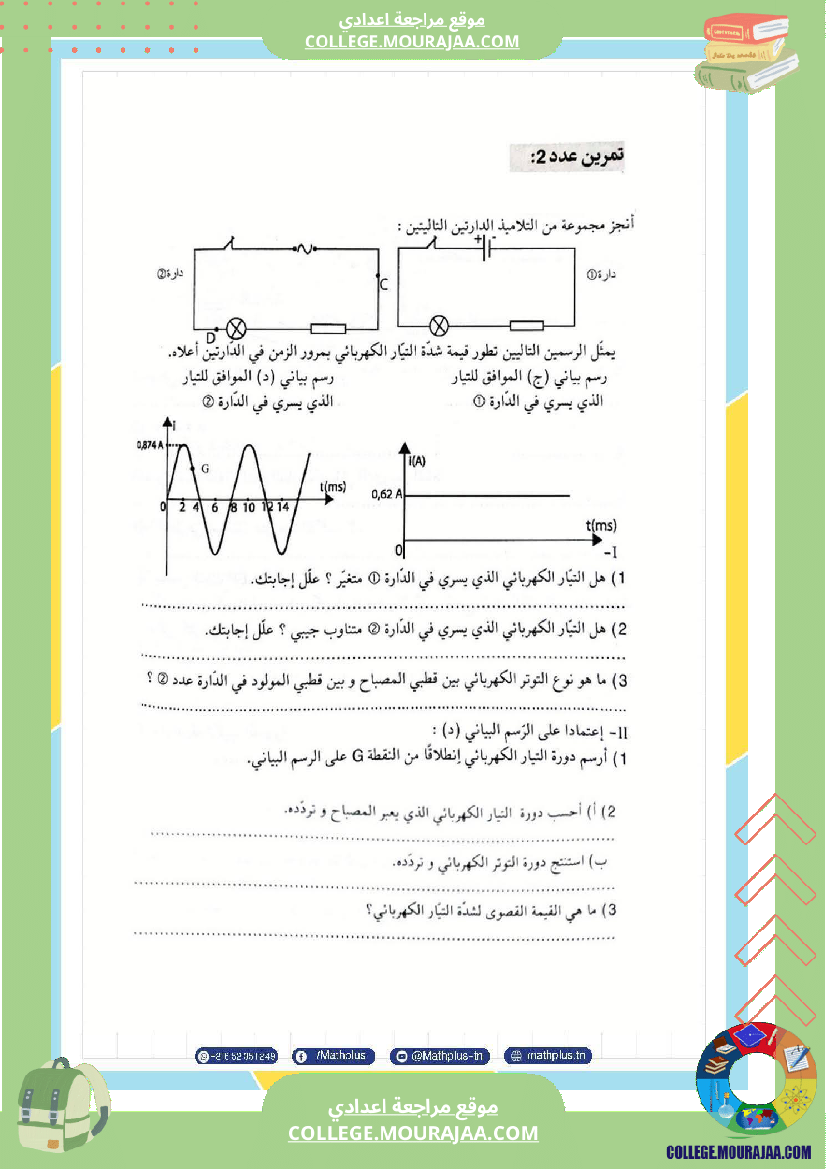 موقع مراجعة اعدادي
COLLEGE.MOURAJAA.COM
تمرين عدد 2:
أنجز مجموعة من التلاميذ الدارتين التاليتين :
+ -
دارة①
دارة②
C
D
يمثّل الرسمين التاليين تطور قيمة شدّة التيّار الكهربائي بمرور الزمن في الدّارتين أعلاه.
رسم بياني (ج) الموافق للتيار
الذي يسري في الدّارة ①
رسم بياني (د) الموافق للتيار
الذي يسري في الدّارة ②
i(A)
0,62 A
t(ms)
0
i
0,874 A
G
t(ms)
0 2 4 6 8 10 12 14
I-
1) هل التيّار الكهربائي الذي يسري في الدّارة ① متغيّر ؟ علّل إجابتك.
2) هل التيّار الكهربائي الذي يسري في الدّارة ② متناوب جيبي ؟ علّل إجابتك.
3) ما هو نوع التوتر الكهربائي بين قطبي المصباح و بين قطبي المولود في الدّارة عدد ② ؟
II- إعتمادا على الرّسم البياني (د) :
1) أرسم دورة التيار الكهربائي إنطلاقًا من النقطة G على الرسم البياني.
2) أ) أحسب دورة التيار الكهربائي الذي يعبر المصباح و تردّده.
ب) استنتج دورة التوتر الكهربائي و تردّده.
3) ما هي القيمة القصوى لشدّة التيّار الكهربائي؟
/Mathplus
@Mathplus-tn
mathplus.tn
موقع مراجعة اعدادي
COLLEGE.MOURAJAA.COM
COLLEGE.MOURAJAA.COM